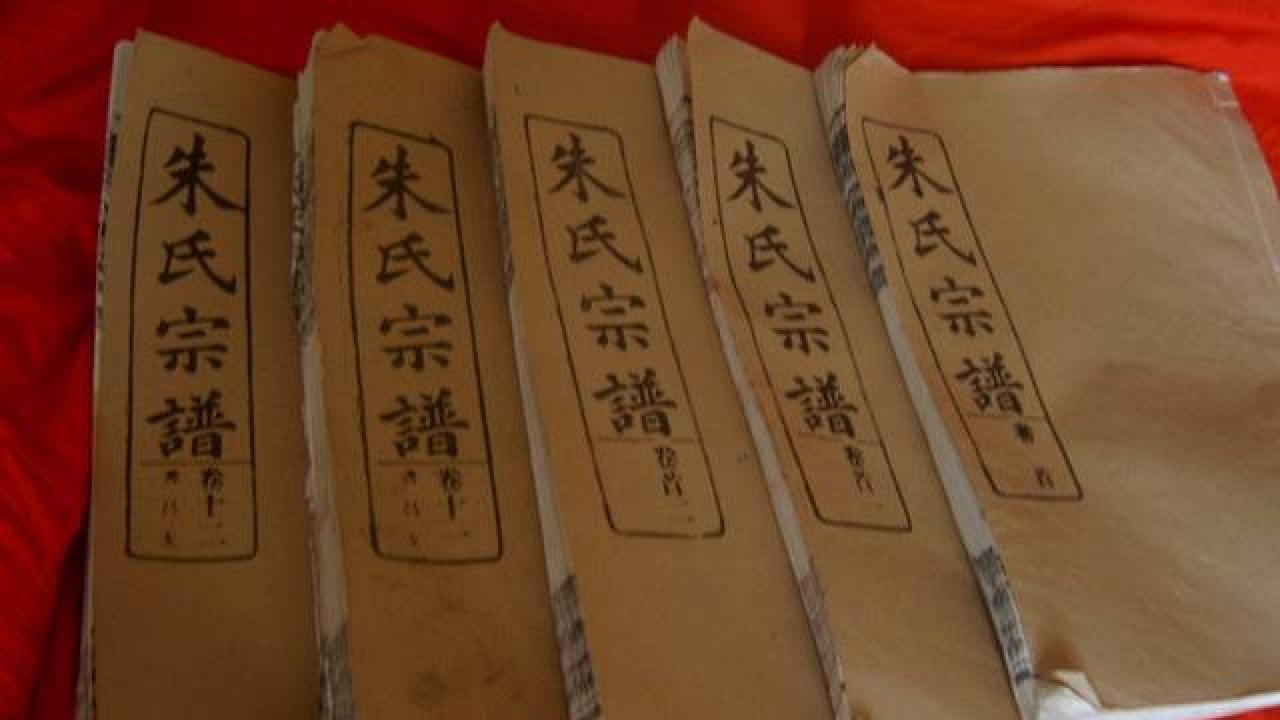 朱氏宗譜
卷十二
朱氏宗譜
卷十
朱氏宗譜
卷首二
朱氏宗譜
卷首
朱氏宗譜
首